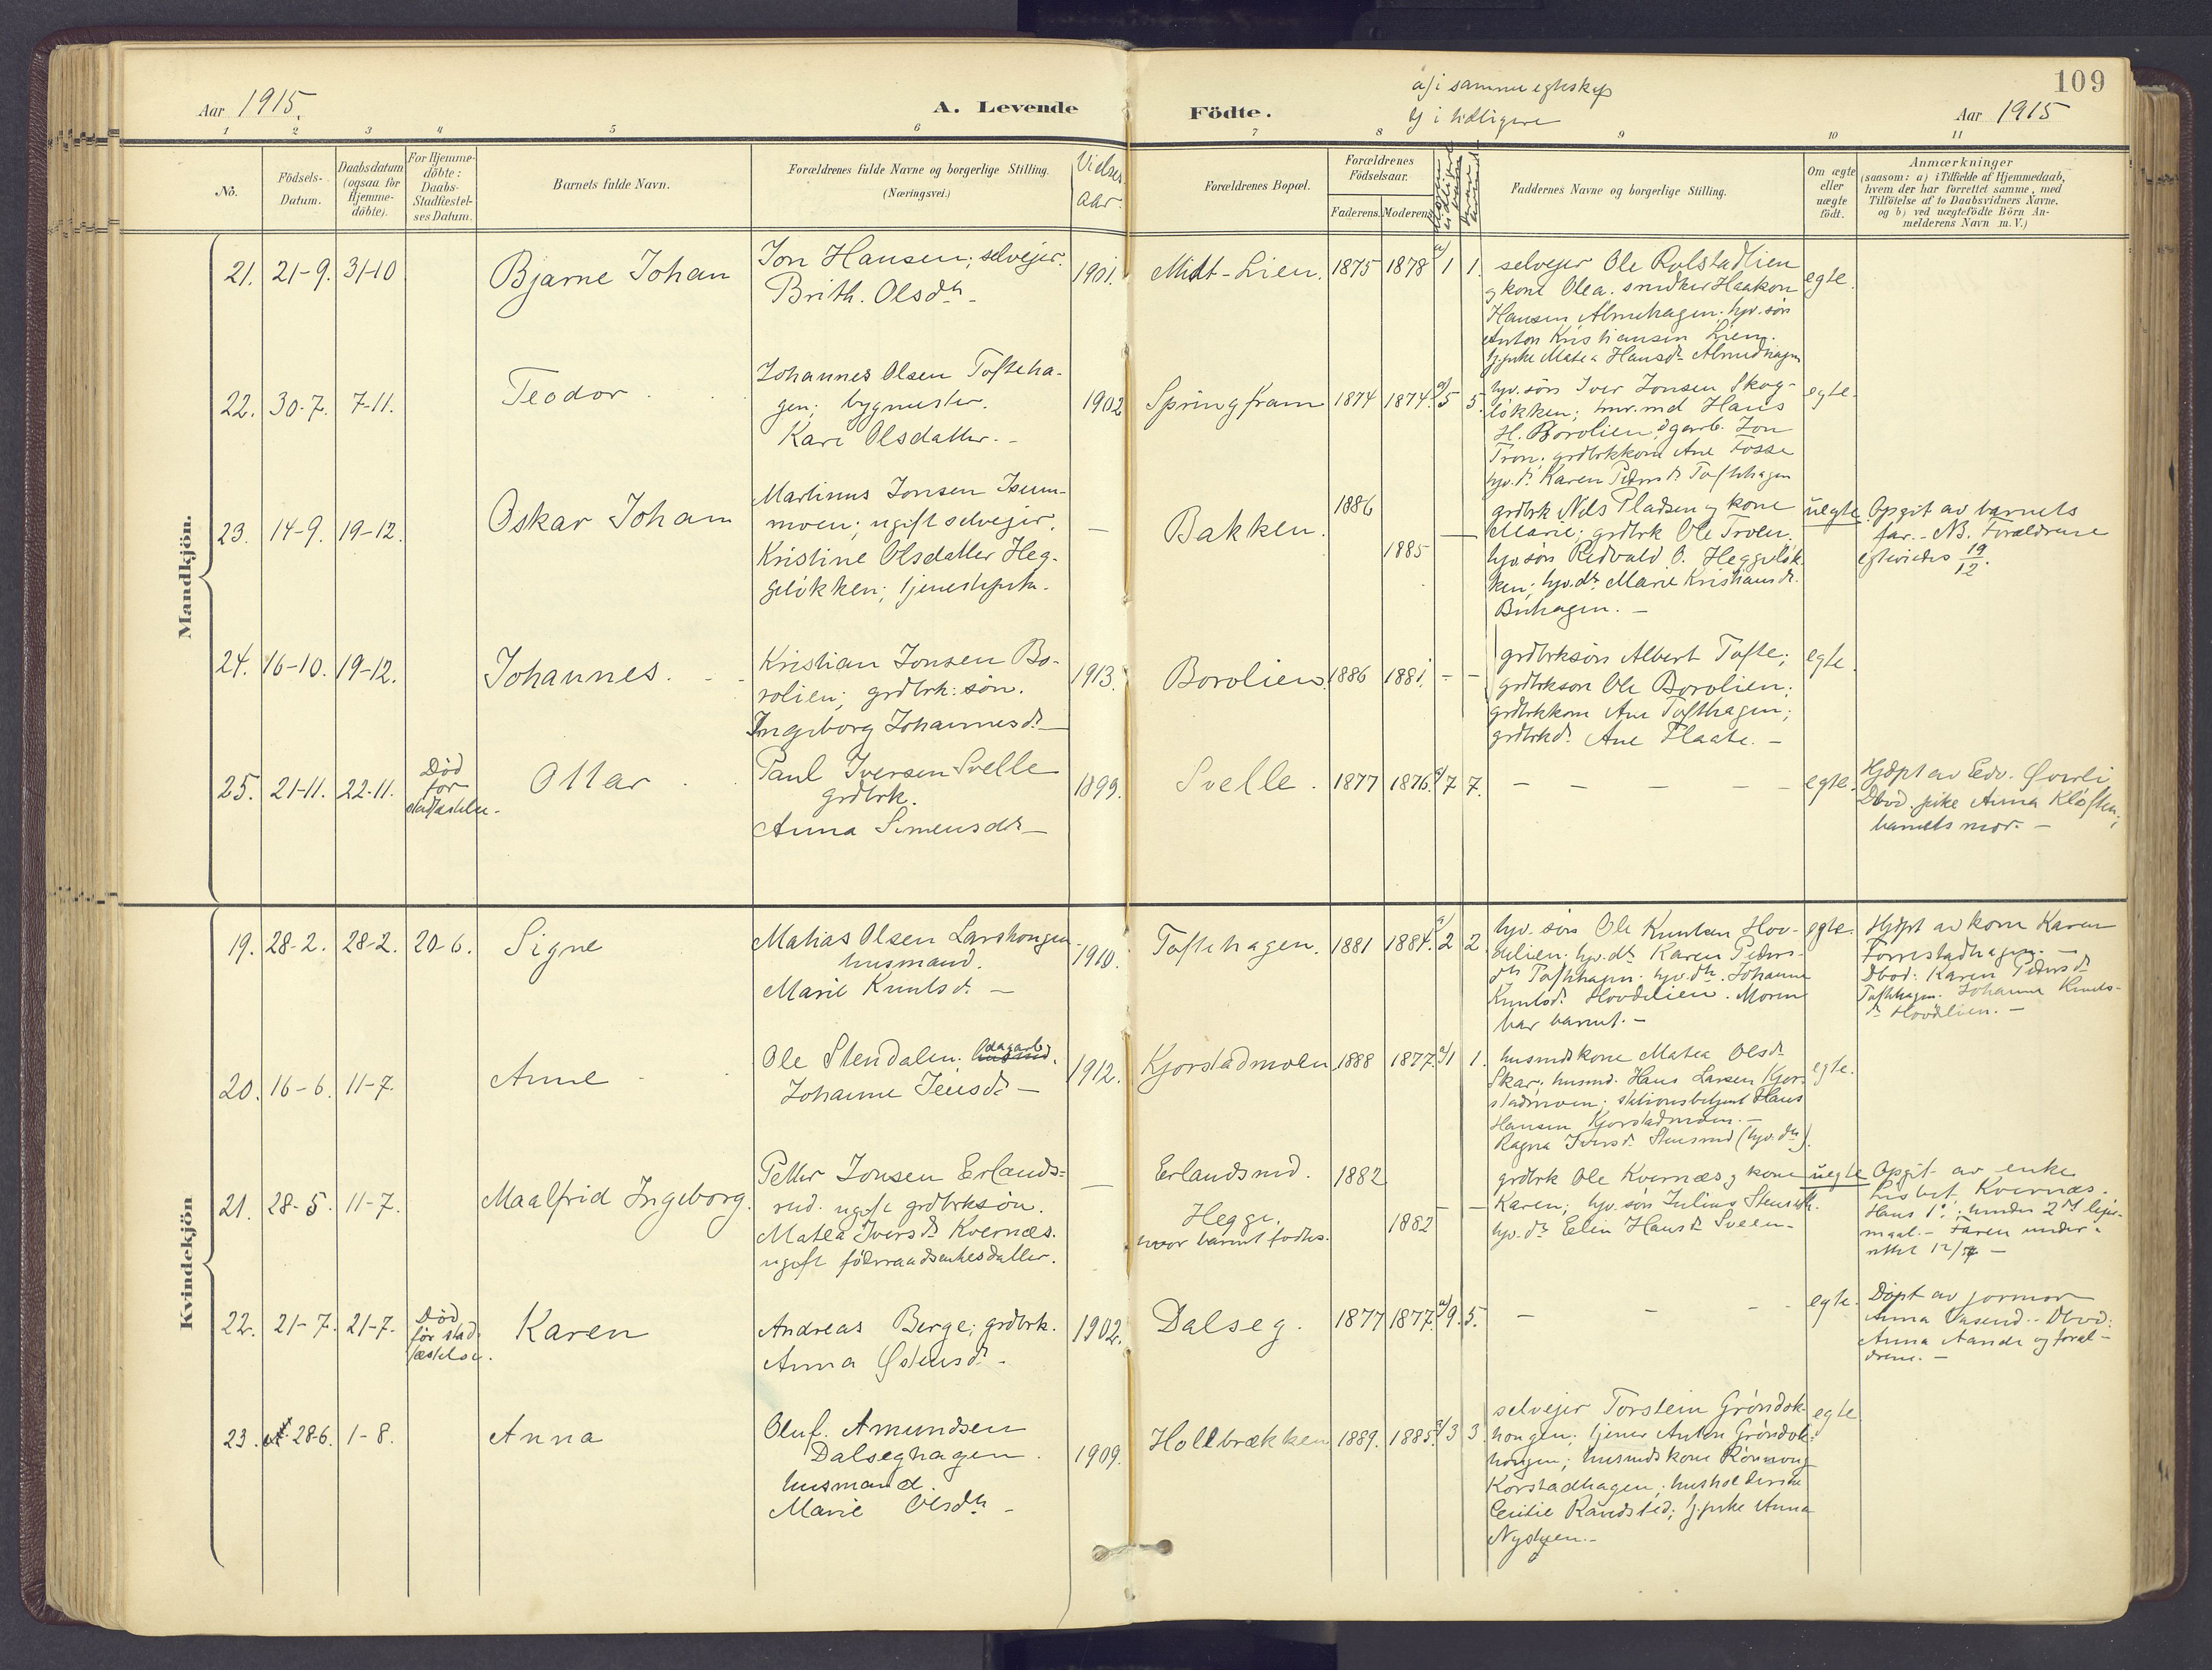 109
a) i samme egteskap
b) i tidligere
Aar 1915.
A. Levende
Födte.
Aar 1915
1 2 3 4 5 6 7 8 9 10 11
Nô.
Födsels-
Datum.
Daabsdatum
(ogsaa for
Hjemme-
döbte).
For Hjemme-
döbte:
Daabs-
Stadfæstel-
ses Datum.
Barnets fulde Navn.
Forældrenes fulde Navne og borgerlige Stilling.
(Næringsvei.)
Vielses
aar.
Forældrenes Bopæl.
Forældrenes
Födselsaar.
Faderens.
Moderens.
Faddernes Navne og borgerlige Stilling.
Om ægte
eller
uægte
födt.
Anmærkninger
(saasom: a) i Tilfælde af Hjemmedaab,
hvem der har forrettet samme, med
Tilföielse af to Daabsvidners Navne,
og b) ved uægtefödte Börn An-
melderens Navn m. V.)
Mandkjön.
21. 21-9. 31-10
Bjarne Johan
Jon Hansen; selvejer.
Brith. Olsdtr -
1901.
Midt-Lien.
1875 1878 a/1 1.
selvejer Ole Rolstadlien
og kone Olea. snedker Haakon
Hansen Almehagen. hjv. søn
Anton Kristiansen Lien.
Matea Hansdr
egte.
22. 30-7. 7-11.
Teodor
Johannes Olsen Tofteha-
gen; bygmester.
Kari Olsdatter. -
1902
Springfram
1874 1874. a/5 5.
hjv. søn Iver Jonsen Skog-
løkken; Hans
H. Borolien, Jon
Tron. grdbrkkone Ane Fosse
hjv. dr. Karen Pedersdr Tofthagen
egte.
23. 14-9. 19-12.
Oskar Johan
Martinus Jonsen Isum-
moen; ugift selvejer.
Kristine Olsdatter Heg-
geløkken; tjenestepike.
-
Bakken.
1886
1885
-
grdbrk Nils Pladsen og kone
Marie; grdbrk Ole Troen.
hjv. søn Redvald O. Heggeløk-
ken; hjv. dr Marie Kristiansdr.
Buhagen. -
uegte.
Opgit av barnets
far. - NB. Forældrene
egteviedes 19/12.
24. 16-10. 19-12.
Johannes.
Kristian Jonsen Bo-
rolien; grdbrk: søn.
Ingeborg Johannesdr -
1913.
Borolien.
1886 1881. - -
grdbrksøn Albert Tofte;
grdbrkson Ole Borolien;
grdbrkkone Ane Tofthagen;
grdbrkdr. Ane Plaate. -
egte.
25. 21-11. 22-11.
Død
før
stadfæstelse.
Ottar
Paul Iversen Svelle
grdbrk.
Anna Simensdtr -
1899.
Svelle.
1877 1876. a/7 7.
- - - - -
egte.
Hjdpt av Edv. Øverli
Dbvd. pike Anna Kløften;
barnets mor. -
Kvindekjön
19. 28-2. 28-2. 20-6.
Signe
Matias Olsen Larshongen
husmand.
Marie Knutsdr. -
1910.
Toftehagen.
1881 1884. a/2 2.
hjv. søn Ole Knutsen Hov-
delien. hjv. dr. Karen Peders-
dtr Tofthagen. hjv. dtr. Johanne
Knutsdr. Hovdelien. Moren
bar barnet. -
egte.
Hjdpt av kone Karen
Forrestadhagen. -
Dbvd: Karen Pedersdr
Tofthagen. Johanne Knuts-
dr Hovdelien. -
20. 16-6. 11-7.
Anne
Ole Stendalen. dagarb.
Johanne Jensdr -
1912.
Kjorstadmoen
1888 1877. a/1 1.
husmdskone Matea Olsdr
Skar; husmd. Hans Larsen Kjor-
stadmoen; stationsbetjent Hans
Hansen Kjorstadmoen. -
Ragna Iversdr. Stensrud (hjv. dtr).
egte.
21. 28-5. 11-7.
Maalfrid Ingeborg.
Petter Jonsen Erlands-
rud. ugift grdbrksøn.
Matea Iversdr Kvernæs.
ugift føderaadsenkesdatter.
-
Erlandsrud.
Hegge.
hvor barnet fødtes.
1882
1882
- -
grdbrk Ole Kvernæs og kone
Karen; hjv. søn Julius
hjv. dr Elin Hansdr Sveen-
uegte
Opgit av enke
Lisbet Kvernæs.
Hans 1ste; hendes 2det leier-
maal. - Faren under-
rettet 12/7 -
22. 21-7. 21-7.
Død
før stad-
fæstelse.
Karen
Andreas Berge; grdbrk.
Anna Østensdr. -
1902.
Dalseg.
1877 1877. a/9. 5.
- - -
egte.
Døpt av jormor
Anna Vasend. - Dbvd:
Anna Aande og foræl-
drene. -
23. 28-6. 1-8.
Anna
Oluf. Amundsen
Dalseghagen.
husmand.
Marie Olsdtr -
1909.
Hollbrækken
1889. 1885. a/3 3.
selvejer Torstein Grøndok-
hongen; tjener Anton Grøndok-
hongen; husmdskone Rønnoug
Korstadhagen; husholderske
Cecilie Randsted; tj. pike Anna
Nystuen. -
egte.